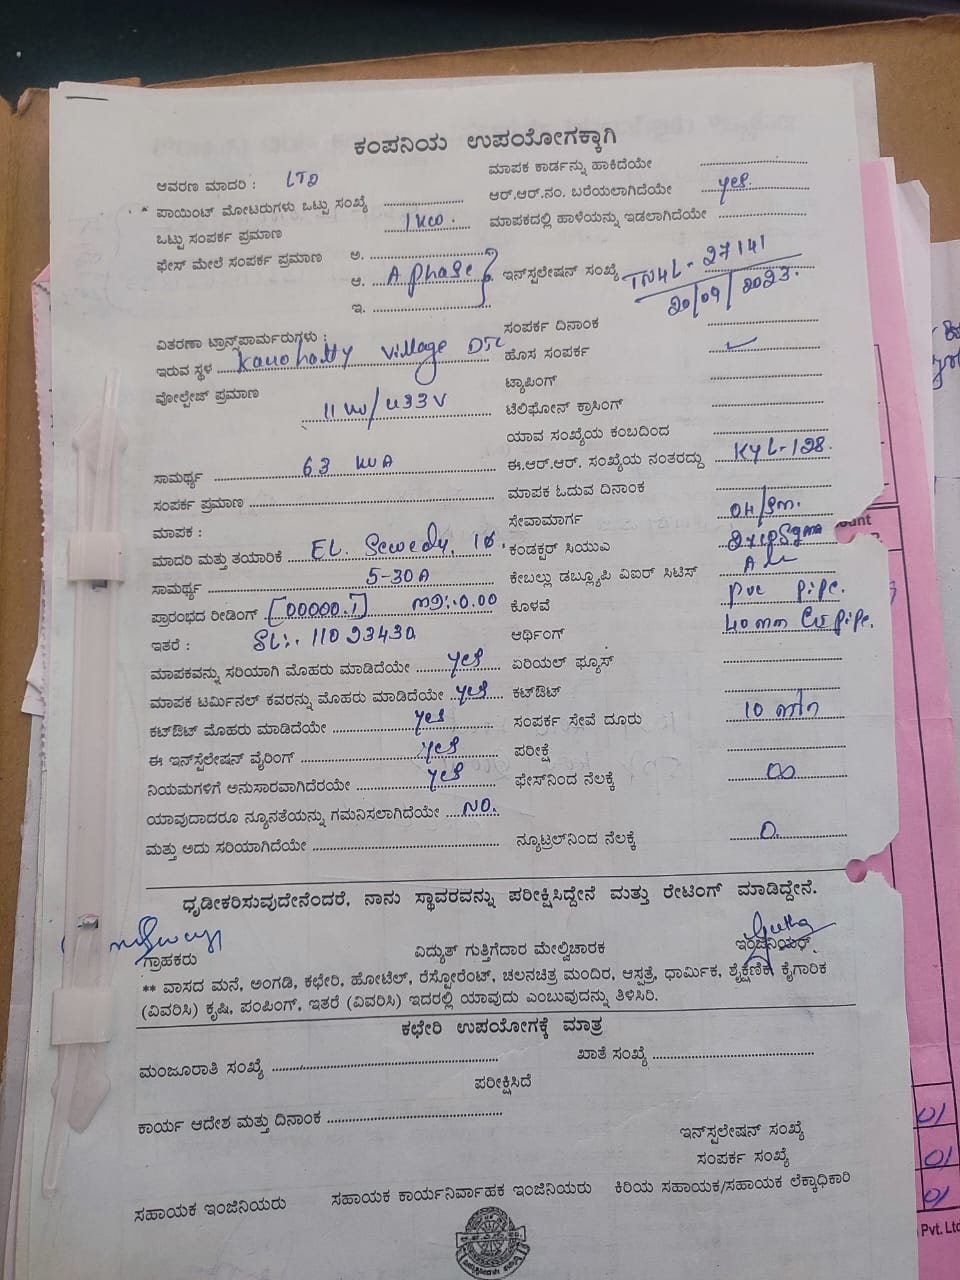 ಕಂಪನಿಯ ಉಪಯೋಗಕ್ಕಾಗಿ
ಆವರಣ ಮಾದರಿ : LTD
ಮಾಪಕ ಕಾರ್ಡನ್ನು ಹಾಕಿದೆಯೇ
* ಪಾಯಿಂಟ್ ಮೋಟರುಗಳು ಒಟ್ಟು ಸಂಖ್ಯೆ
ಆರ್.ಆರ್.ನಂ. ಬರೆಯಲಾಗಿದೆಯೇ yes.
ಒಟ್ಟು ಸಂಪರ್ಕ ಪ್ರಮಾಣ 1 KW.
ಮಾಪಕದಲ್ಲಿ ಹಾಳೆಯನ್ನು ಇಡಲಾಗಿದೆಯೇ
ಫೇಸ್ ಮೇಲೆ ಸಂಪರ್ಕ ಪ್ರಮಾಣ ಅ.
ಆ. A phase
ಇ.
ಇನ್‌ಸ್ಪಲೇಷನ್ ಸಂಖ್ಯೆ TN4L-27141
20/09/2023.
ವಿತರಣಾ ಟ್ರಾನ್ಸ್‌ಪಾರ್ಮರುಗಳು :
ಸಂಪರ್ಕ ದಿನಾಂಕ
ಇರುವ ಸ್ಥಳ village
ಹೊಸ ಸಂಪರ್ಕ ✓
ವೋಲ್ಟೇಜ್ ಪ್ರಮಾಣ 11 KV/433V
ಟ್ಯಾಪಿಂಗ್
ಟೆಲಿಫೋನ್ ಕ್ರಾಸಿಂಗ್
ಯಾವ ಸಂಖ್ಯೆಯ ಕಂಬದಿಂದ
ಸಾಮರ್ಥ್ಯ 63 KVA
ಈ.ಆರ್.ಆರ್. ಸಂಖ್ಯೆಯ ನಂತರದ್ದು KYL-128.
ಸಂಪರ್ಕ ಪ್ರಮಾಣ
ಮಾಪಕ ಓದುವ ದಿನಾಂಕ
ಮಾಪಕ :
ಸೇವಾಮಾರ್ಗ
ಮಾದರಿ ಮತ್ತು ತಯಾರಿಕೆ EL. Sewedy, 1Ø.
ಕಂಡಕ್ಟರ್ ಸಿಯುಎ
ಸಾಮರ್ಥ್ಯ 5-30A
ಕೇಬಲ್ಲು ಡಬ್ಲ್ಯೂಪಿ ವಿಐರ್ ಸಿಟಿಸ್
ಪ್ರಾರಂಭದ ರೀಡಿಂಗ್ [00000.1] MD:-0.00
ಕೊಳವೆ PVC PiPe.
ಇತರೆ : SL:. 11023430
ಆರ್ಥಿಂಗ್ 40mm pipe.
ಮಾಪಕವನ್ನು ಸರಿಯಾಗಿ ಮೊಹರು ಮಾಡಿದೆಯೇ yes
ಏರಿಯಲ್ ಫ್ಯೂಸ್
ಮಾಪಕ ಟರ್ಮಿನಲ್ ಕವರನ್ನು ಮೊಹರು ಮಾಡಿದೆಯೇ yes
ಕಟ್‌ಔಟ್
ಕಟ್‌ಔಟ್ ಮೊಹರು ಮಾಡಿದೆಯೇ yes
ಸಂಪರ್ಕ ಸೇವೆ ದೂರು 10 mtr
ಈ ಇನ್‌ಸ್ಪೆಲೇಷನ್ ವೈರಿಂಗ್ yes
ಪರೀಕ್ಷೆ
ನಿಯಮಗಳಿಗೆ ಅನುಸಾರವಾಗಿದೆರಯೇ yes
ಫೇಸ್‌ನಿಂದ ನೆಲಕ್ಕೆ ∞
ಯಾವುದಾದರೂ ನ್ಯೂನತೆಯನ್ನು ಗಮನಿಸಲಾಗಿದೆಯೇ NO.
ಮತ್ತು ಅದು ಸರಿಯಾಗಿದೆಯೇ
ನ್ಯೂಟ್ರಲ್‌ನಿಂದ ನೆಲಕ್ಕೆ 0.
ಧೃಡೀಕರಿಸುವುದೇನೆಂದರೆ, ನಾನು ಸ್ಥಾವರವನ್ನು ಪರೀಕ್ಷಿಸಿದ್ದೇನೆ ಮತ್ತು ರೇಟಿಂಗ್ ಮಾಡಿದ್ದೇನೆ.
ಗ್ರಾಹಕರು ವಿದ್ಯುತ್ ಗುತ್ತಿಗೆದಾರ ಮೇಲ್ವಿಚಾರಕ ಇಂಜಿನಿಯರ್.
** ವಾಸದ ಮನೆ, ಅಂಗಡಿ, ಕಛೇರಿ, ಹೋಟೆಲ್, ರೆಸ್ಟೋರೆಂಟ್, ಚಲನಚಿತ್ರ ಮಂದಿರ, ಆಸ್ಪತ್ರೆ, ಧಾರ್ಮಿಕ, ಶೈಕ್ಷಣಿಕ ಕೈಗಾರಿಕೆ
(ವಿವರಿಸಿ) ಕೃಷಿ, ಪಂಪಿಂಗ್, ಇತರೆ (ವಿವರಿಸಿ) ಇದರಲ್ಲಿ ಯಾವುದು ಎಂಬುವುದನ್ನು ತಿಳಿಸಿರಿ.
ಕಛೇರಿ ಉಪಯೋಗಕ್ಕೆ ಮಾತ್ರ
ಮಂಜೂರಾತಿ ಸಂಖ್ಯೆ
ಖಾತೆ ಸಂಖ್ಯೆ
ಪರೀಕ್ಷಿಸಿದೆ
ಕಾರ್ಯ ಆದೇಶ ಮತ್ತು ದಿನಾಂಕ
ಇನ್‌ಸ್ಪಲೇಷನ್ ಸಂಖ್ಯೆ
ಸಂಪರ್ಕ ಸಂಖ್ಯೆ
ಸಹಾಯಕ ಇಂಜಿನಿಯರು ಸಹಾಯಕ ಕಾರ್ಯನಿರ್ವಾಹಕ ಇಂಜಿನಿಯರು ಕಿರಿಯ ಸಹಾಯಕ/ಸಹಾಯಕ ಲೆಕ್ಕಾಧಿಕಾರಿ
01
01
01
Pvt. Ltd